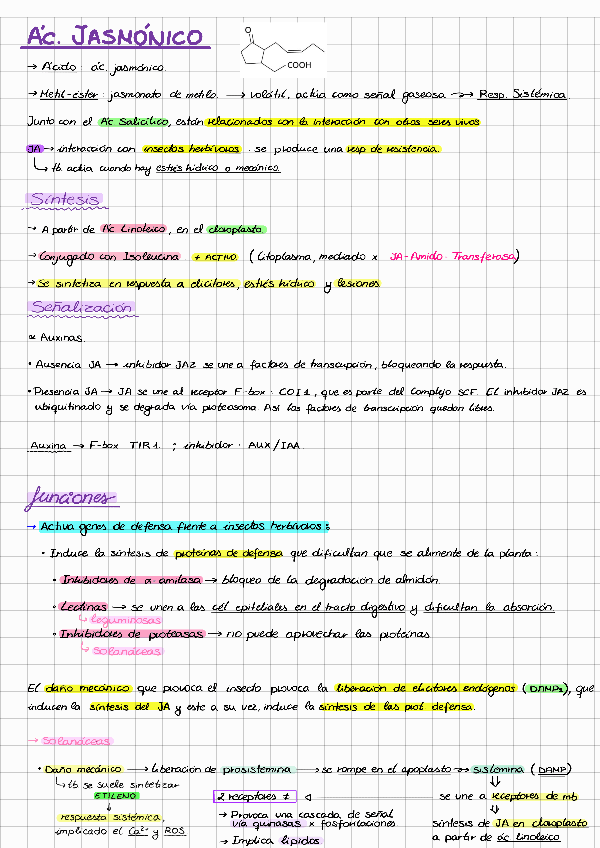 Ác. JASMÓNICO
O
COOH
→ Ácido: ác. jasmónico.
→ Metil-éster: jasmonato de metilo. → volátil, actúa como señal gaseosa → Resp. Sistémica.
Junto con el Ác Salicílico, están relacionados con la interacción con otros seres vivos
JA → interacción con insectos herbívoros. se produce una resp de resistencia.
↳ tb actúa cuando hay estrés hídrico o mecánico.
Síntesis
→ A partir de Ác Linoleico, en el cloroplasto
→ Conjugado con Isoleucina + ACTIVO (Citoplasma, mediado x JA-Amido Transferasa)
→ Se sintetiza en respuesta a elicitores, estrés hídrico y lesiones
Señalización
≃ Auxinas.
• Ausencia JA → inhibidor JAZ se une a factores de transcripción, bloqueando la respuesta.
• Presencia JA → JA se une al receptor F-box: COI1, que es parte del Complejo SCF. El inhibidor JAZ es
ubiquitinado y se degrada vía proteosoma Así los factores de transcripción quedan libres.
Auxina → F-box TIR1. ; inhibidor: AUX/IAA.
funciones
→ Activa genes de defensa frente a insectos herbívoros:
• Induce la síntesis de proteínas de defensa que dificultan que se alimente de la planta:
• Inhibidores de α amilasa → bloqueo de la degradación de almidón.
• Lectinas → se unen a las cél epiteliales en el tracto digestivo y dificultan la absorción.
↳ leguminosas
• Inhibidores de proteasas → no puede aprovechar las proteínas
↳ Solanáceas
El daño mecánico que provoca el insecto provoca la liberación de elicitores endógenos (DAMPs), que
inducen la síntesis del JA y este a su vez, induce la síntesis de las prot defensa.
→ Solanáceas
• Daño mecánico → liberación de prosistemina → se rompe en el apoplasto → sistemina (DAMP)
↳ tb se suele sintetizar
ETILENO
↓
respuesta sistémica,
implicado el Ca²⁺ y ROS
2 receptores ≠
→ Provoca una cascada de señal
vía quinasas x fosforilaciones
→ Implica lípidos
⇓
se une a receptores de mb
⇓
síntesis de JA en cloroplasto
a partir de ác linoleico